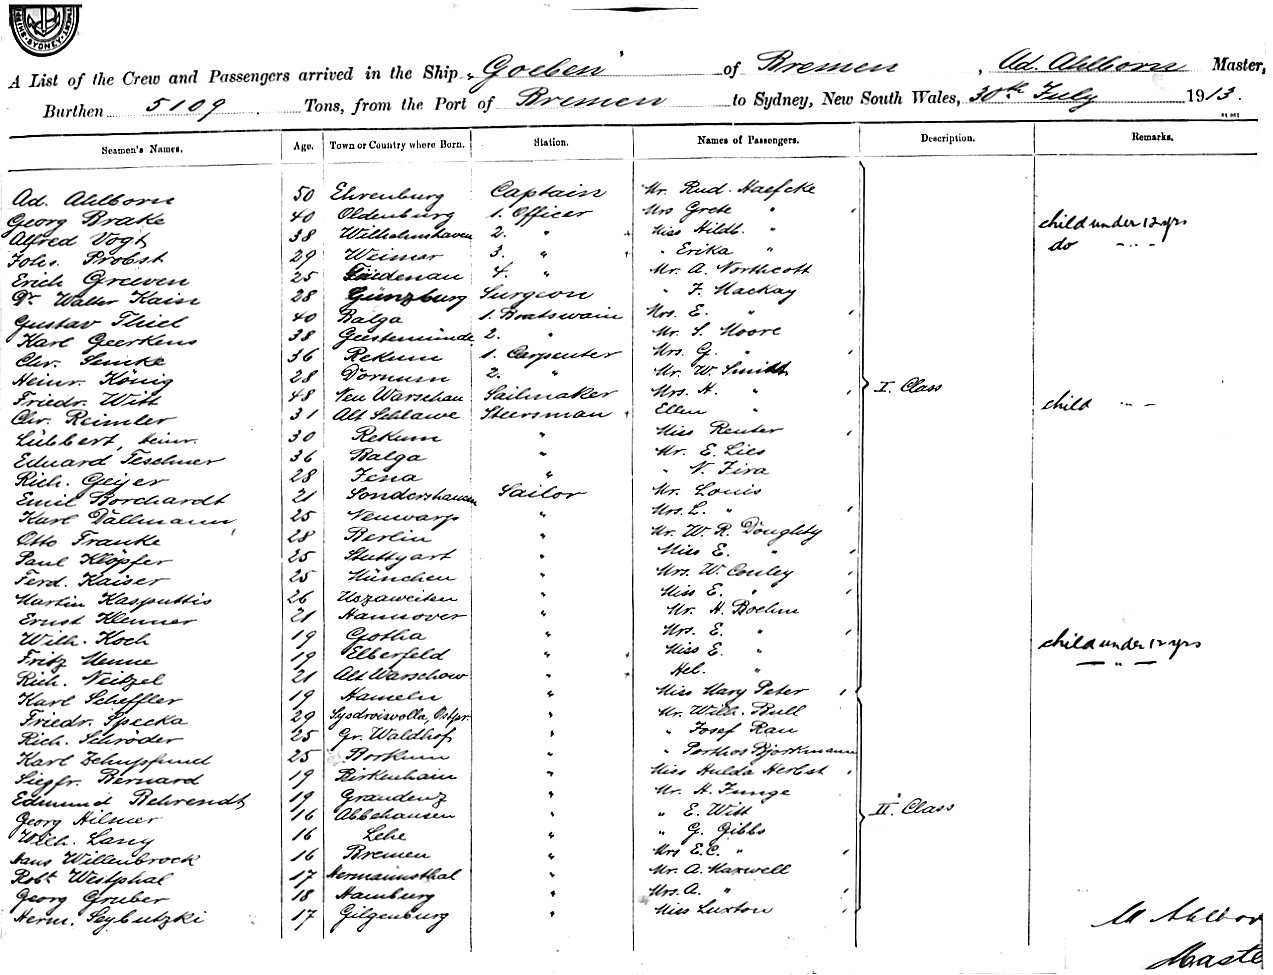 SHIPPING
SYDNEY
A List of the Crew and Passengers arrived in the Ship „Goeben" of Bremen, Ad. Ahlborn Master,
Burthen 5109 Tons, from the Port of Bremen to Sydney, New South Wales, 30th July 1913.
Seamen's Names. Age. Town or Country where Born. Station. Names of Passengers. Description. Remarks.
Ad. Ahlborn 50 Ehrenburg Captain Mr. Rud. Haefcke
Georg Brake 40 Oldenburg 1. Officer Mrs Grete " child under 12 yrs
Alfred Vogt 38 Wilhelmshaven 2. " Miss Hildt. " do " " "
Johs. Probst 29 Weimar 3. " " Erika "
Erich Greeven 25 Friedenau 4. " Mr. A. Northcott
Dr. Walter Kain 28 Günzburg Surgeon " F. Mackay
Gustav Thiel 40 Balga 1. Boatswain Mrs. E. "
Karl Geerkens 38 Geestemünde 2. " Mr. S. Moore
Chr. 36 Rekum 1. Carpenter Mrs. G. "
Heinr. König 28 Dornum 2. " Mr. W. Smith I. Class
Friedr. Witt 48 Neu Warschau Sailmaker Mrs. H. "
Chr. Reimler 31 Alt Schlawe Steersman Ellen " child " " "
Lübbert, Heinr. 30 Rekum " Miss Reuter
Eduard Teschner 36 Balga " Mr. E. Lies
Rich. Geyer 28 Jena " " N. Fira
Emil Borchardt 21 Sondershausen Sailor Mr. Louis
Karl Dallmann 25 Neuwarp " Mrs. L. "
Otto Franke 28 Berlin " Mr. W. R. Doughty
Paul Klöpfer 25 Stuttgart " Miss E. "
Ferd. Kaiser 25 München " Mrs. W. Conley
Martin Kasputtis 26 Uszaweiten " Miss E. "
Ernst Klenner 21 Hannover " Mr. H. Boehm
Wilh. Koch 19 Gotha " Mrs. E. " child under 12 yrs
Fritz Menne 19 Elberfeld " Miss E. " — " —
Rich. Neitzel 21 Alt Warschow " Hel. "
Karl Scheffler 19 Hameln " Miss Mary Peter
Friedr. Specka 29 Ostpr. " Mr. Wilh. Bull
Rich. Schröder 25 Gr. Waldhof " " Josef Rau
Karl Zehnpfund 25 Borkum " " Porthos Bjorkmann
Siegfr. Bernard 19 Birkenhain " Miss Hulda Herbst
Edmund Behrendt 19 Graudenz " Mr. H. Junge
Georg Hilmer 16 Abbehausen " " E. Witt II. Class
Wilh. Lang 16 Lehe " " G. Gibbs
Hans Willenbrock 16 Bremen " Mrs E.C. "
Robt. Westphal 17 Hermannsthal " Mr. A. Maxwell
Georg Gruber 18 Hamburg " Mrs. A. "
Herm. Seybutzki 17 Gilgenburg " Miss Luxton
Ahlbor
Maste